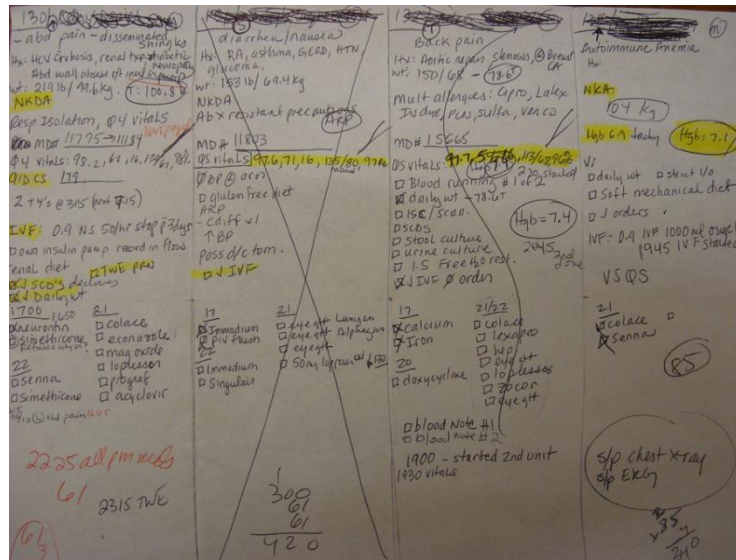 130
- abd pain - disseminated
shingles
Hx: HCV Cirrhosis, renal txp diabetic
neuropathy
Abd wall
wt: 219 lb/99.6kg. T: 100.8
NKDA
Resp Isolation, Q4 vitals
MD# 11775→11184
Q4 vitals: 98.2, 62, 16,
QID CS 179
2 T4's @ 315 (next 915)
IVF: 0.9 NS 50/hr stop p 3 days
□ own insulin pump record in flow
renal diet □ TWE PRN
SCD's declines
Daily wt
1700
□ neurontin
□ simethicone
22
□ senna
□ simethicone
abd pain 1645
21
□ colace
□ econazole
□ mag oxide
□ lopressor
□ prograf
□ acyclovir
2225 all pm meds
61
2315 TWE
61
3
diarrhea/nausea
Hx: RA, asthma, GERD, HTN
glaucoma,
wt: 153 lb/69.4kg
NKDA
Abx resistant precautions
ARP
MD# 11803
QS vitals 97.6, 71, 16, 135/80, 97%
Ø BP @ arm
□ gluten free diet
ARP
- Cdiff ↓1
↑ BP
poss d/c tom.
□ √ IVF
17
□ Immodium
□ PIV flush
22
□ Immodium
□ Singulair
21
□ eye gtt Lumigan
□ eye gtt Alphagan
□ eye gtt
□ 50mg lopressor
300
61
61
420
Back pain
Hx: Aortic repair stenosis, Breast
CA
wt: 150/68 - 78.6
Mult allergies: Cipro, Latex
IV dye, PCN, sulfa, vanco
MD# 15665
QS vitals: 97.7, 113/63, 96%
□ Blood running #1 of 2
230 started
□ daily wt - 78.6
□ 1.5L/
□ SCDs
Hgb = 7.4
□ Stool culture
□ urine culture
2045 2nd
done
□ 1.5 Free H2O rest.
√ IVF Ø order
17
□ Calcium
□ Iron
20
□ doxycycline
21/22
□ colace
□ lexapro
□ hep
□ eye gtt
□ lopressor
□ zocor
□ eye gtt
□ blood Note #1
□ blood Note #2
1900 - started 2nd unit
1930 vitals
Autoimmune Anemia
Hx:
NKA
104 kg
Hgb 6.9 tachy Hgb = 7.1
VS
□ daily wt □ strict I/O
□ Soft mechanical diet
□ √ orders
IVF: 0.9 IVF 1000ml
1945 IVF started
VS QS
21
□ colace
□ senna
85
s/p chest X-ray
s/p EKG
85